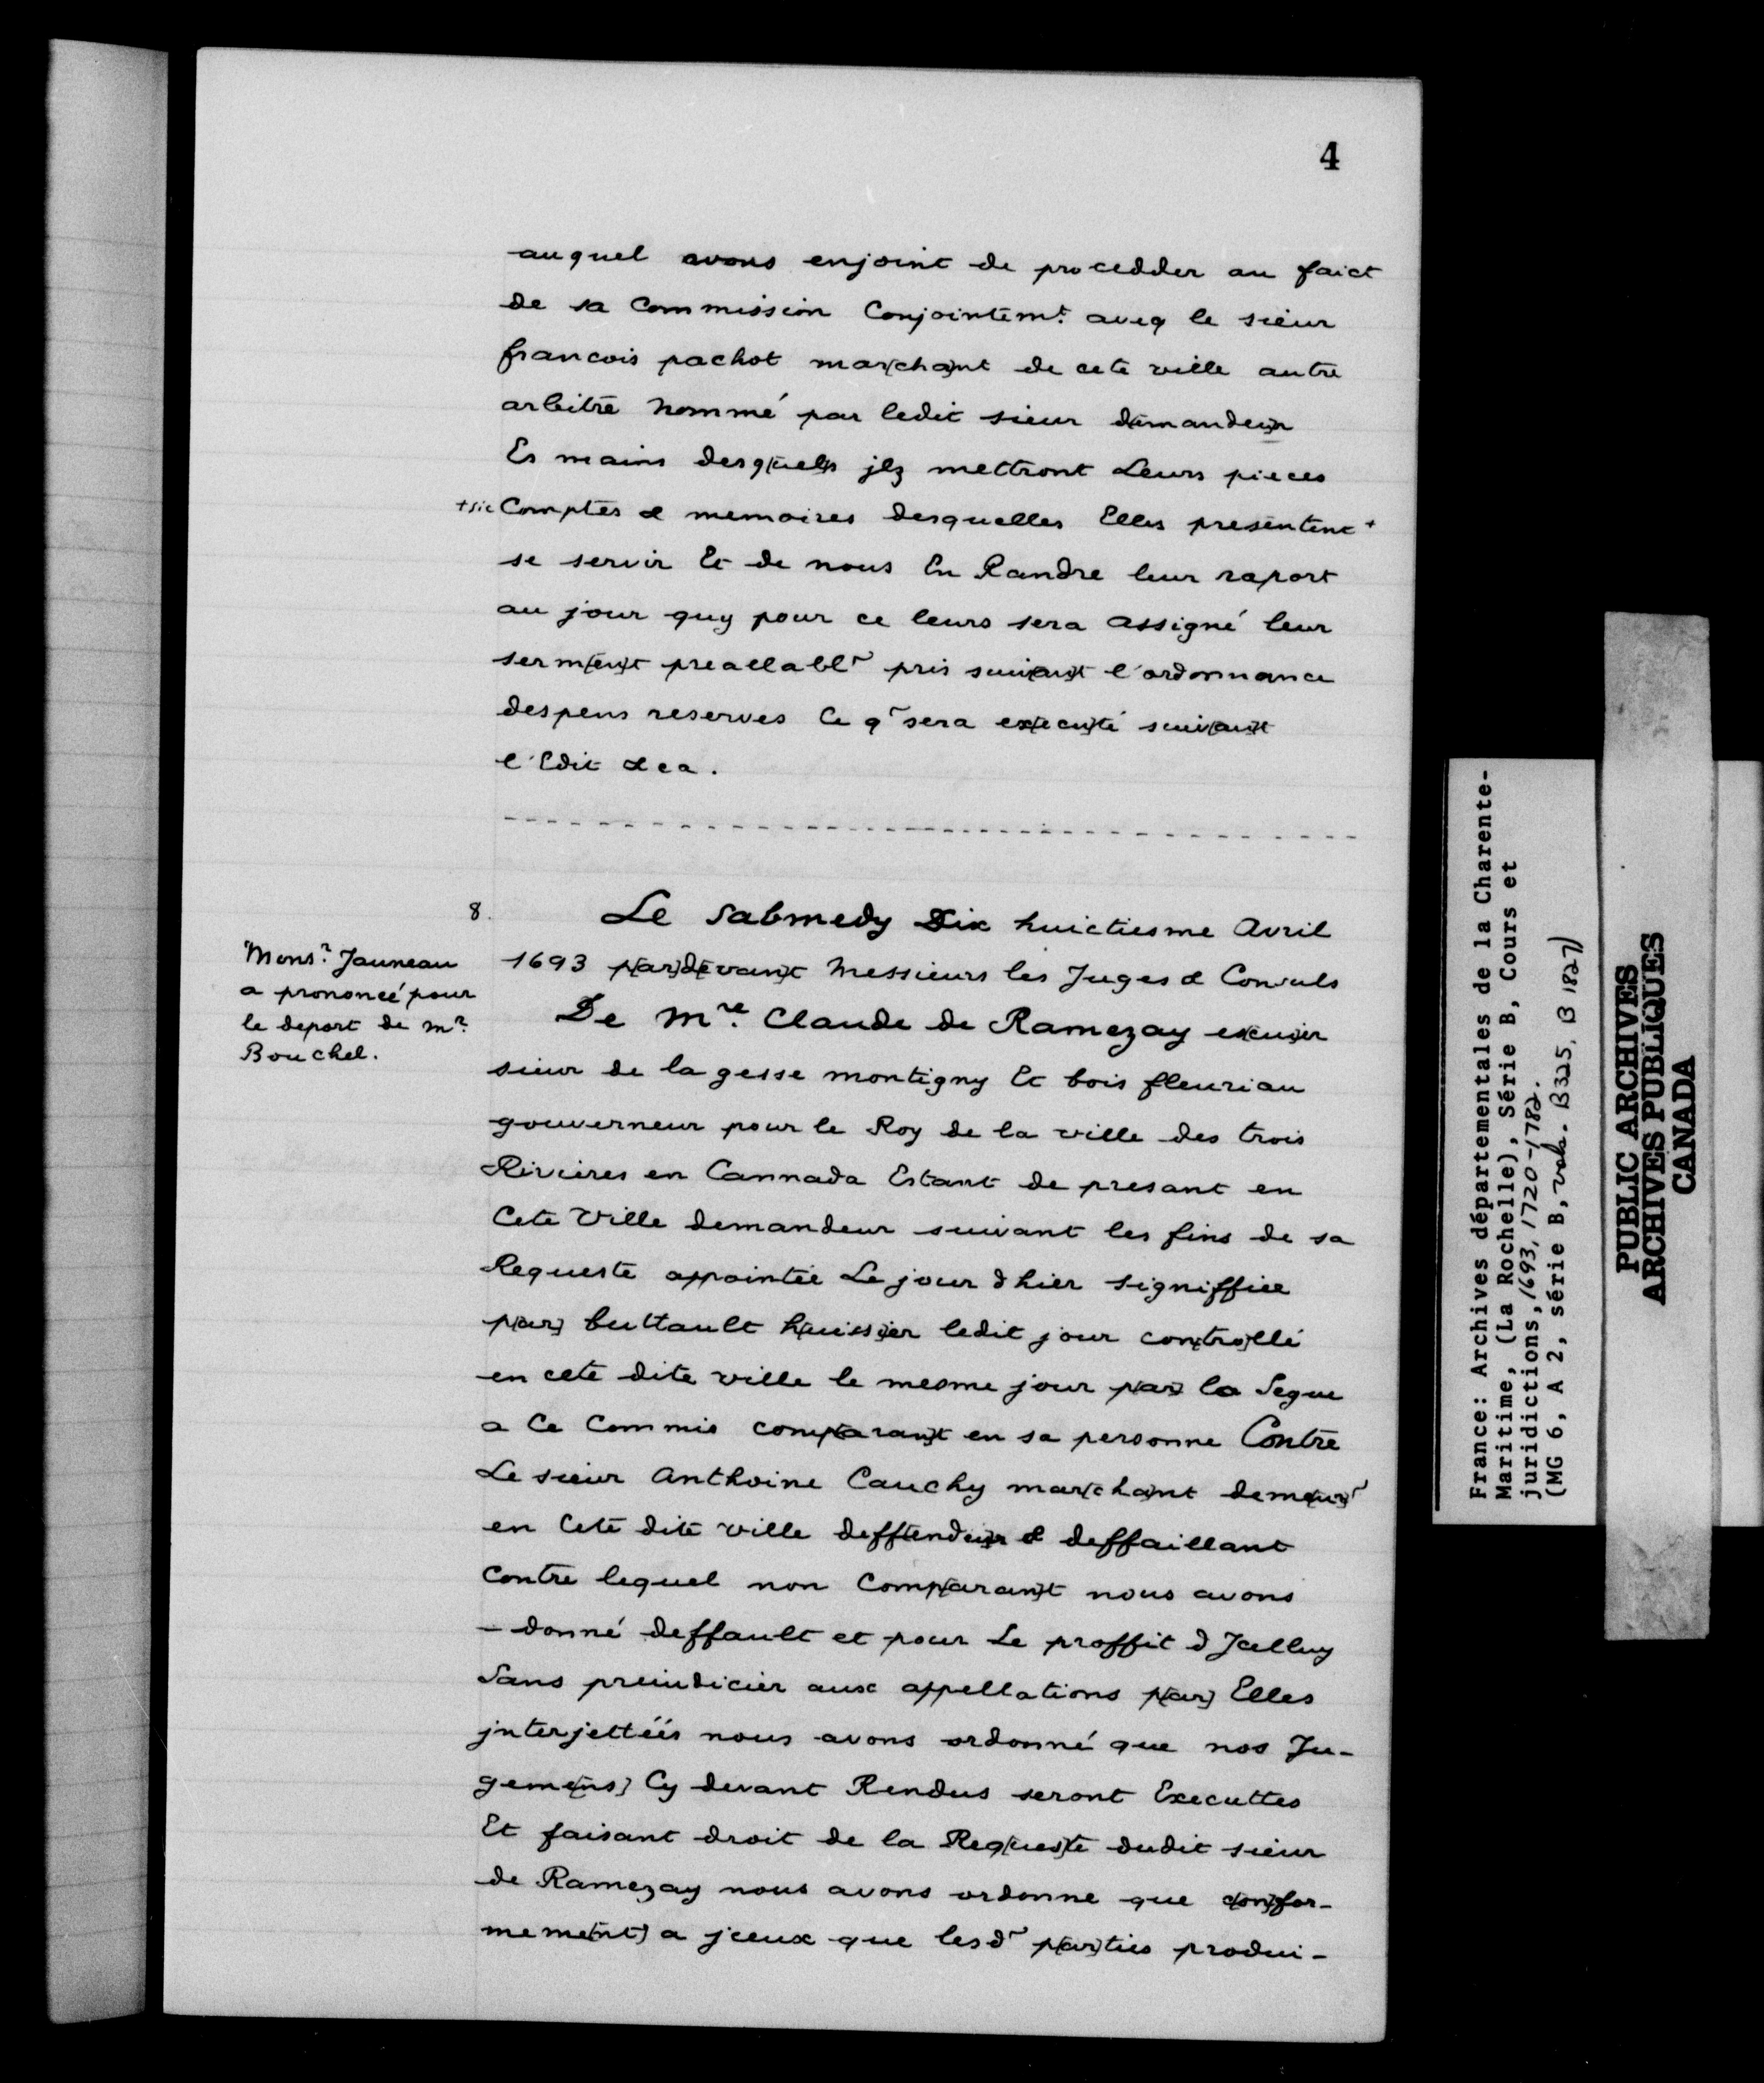 4
auquel avons enjoint de procedder au faict
de sa Commission Conjointemt. aveq le sieur
francois pachot mar(cha)nt de cete ville autre
arbitre Nommé par ledit sieur d(e)mandeu(r)
Es mains desq(uel)s jlz mettront Leurs pieces
+sic Comptes & memoires desquelles Elles presentent +
se servir Et de nous En Randre leur raport
au jour quy pour ce leurs sera assigné leur
serm(en)t preallabl~ pris suiv(an)t l'ordonnance
despens reserves Ce q~ sera ex(ecu)té suiv(an)t
l'Edit &ca.
8.
Le Sabmedy Dix huictiesme Avril
1693 p(ar)d(e)van(t) Messieurs les Juges & Consuls
Monsr. Jauneau
a prononcé pour
le deport de mr.
Bouchel.
De Mre. Claude de Ramezay e(s)cu(i)er
sieur de la gesse montigny Et bois fleuriau
gouverneur pour le Roy de la ville des trois
Rivieres en Cannada Estant de presant en
Cete Ville demandeur suivant les fins de sa
Requeste appointée Le jour d'hier signiffiee
p(ar) buttault h(uiss)ier ledit jour con(tro)llé
en cete dite ville le mesme jour p(ar) la Segue
a Ce Commis comp(aran)t en sa personne Contre
Le sieur Anthoine Cauchy mar(cha)nt deme(ur)~
en Cete dite ville deff(endeu)r & deffaillant
Contre lequel non Comp(aran)t nous avons
- donné deffault et pour Le proffit d Jcelluy
Sans preiudicier aux appellations p(ar) Elles
jnterjettéés nous avons ordonné que nos Ju-
gem(ens) Cy devant Rendus seront Executtes
Et faisant droit de la Req(ues)te dudit sieur
de Ramezay nous avons ordonne que c(on)for-
meme(nt) a jceux que lesd~ p(ar)ties produi-
France: Archives départementales de la Charente-
Maritime, (La Rochelle), Série B, Cours et
juridictions, 1693, 1720-1782.
(MG 6, A 2, série B, vols. B325, B 1827)
PUBLIC ARCHIVES
ARCHIVES PUBLIQUES
CANADA